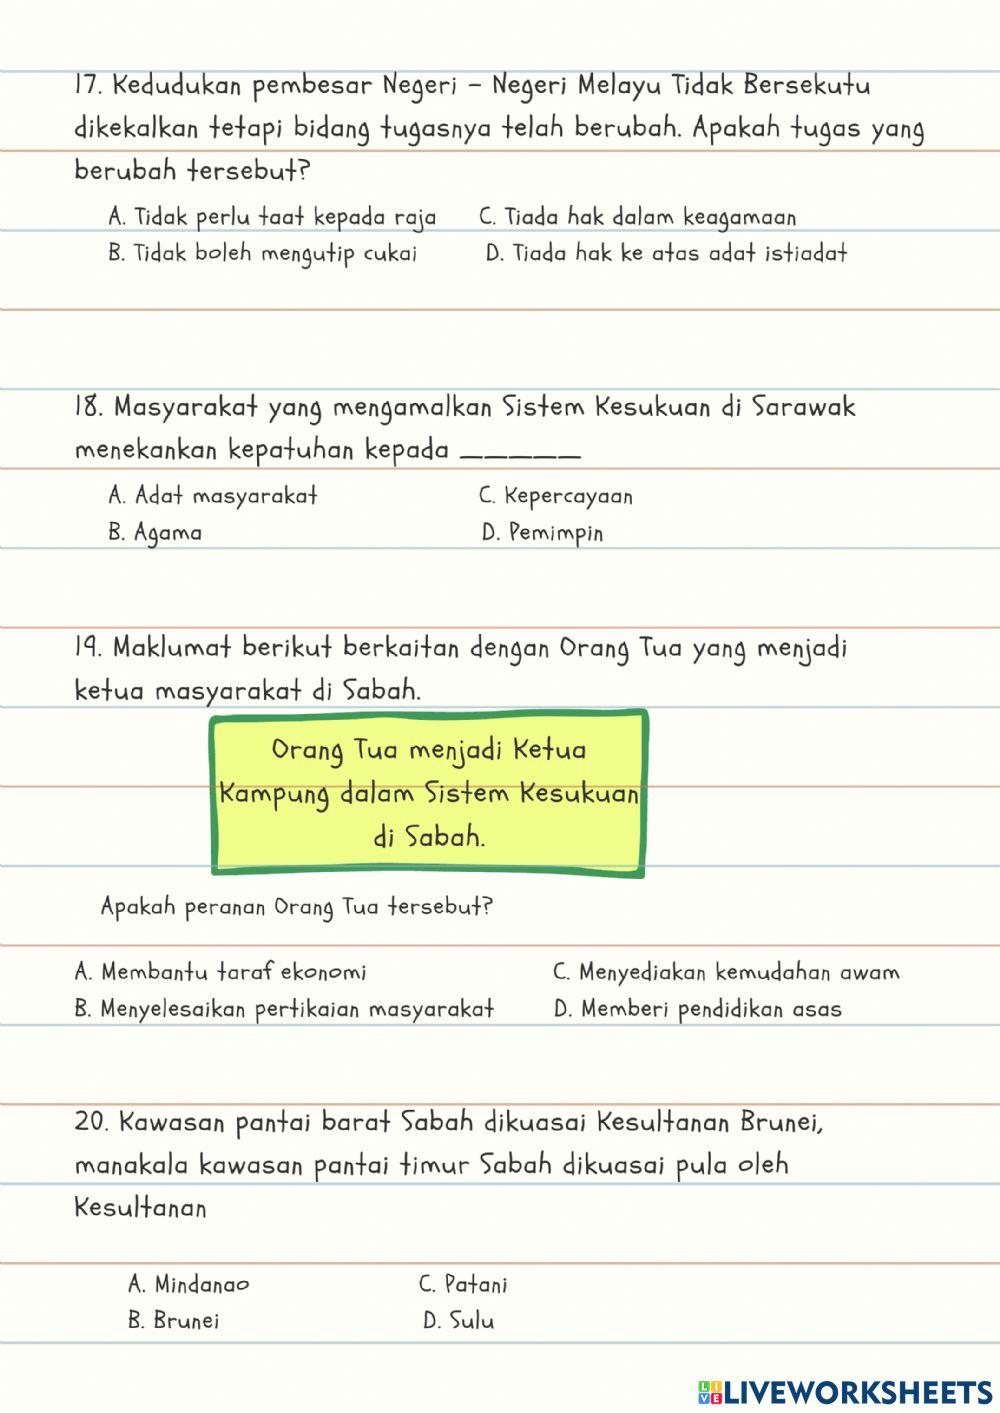 17. Kedudukan pembesar Negeri - Negeri Melayu Tidak Bersekutu
dikekalkan tetapi bidang tugasnya telah berubah. Apakah tugas yang
berubah tersebut?
A. Tidak perlu taat kepada raja
C. Tiada hak dalam keagamaan
B. Tidak boleh mengutip cukai
D. Tiada hak ke atas adat istiadat
18. Masyarakat yang mengamalkan Sistem Kesukuan di Sarawak
menekankan kepatuhan kepada ______
A. Adat masyarakat
C. Kepercayaan
B. Agama
D. Pemimpin
19. Maklumat berikut berkaitan dengan Orang Tua yang menjadi
ketua masyarakat di Sabah.
Orang Tua menjadi Ketua
Kampung dalam Sistem Kesukuan
di Sabah.
Apakah peranan Orang Tua tersebut?
A. Membantu taraf ekonomi
C. Menyediakan kemudahan awam
B. Menyelesaikan pertikaian masyarakat
D. Memberi pendidikan asas
20. Kawasan pantai barat Sabah dikuasai Kesultanan Brunei,
manakala kawasan pantai timur Sabah dikuasai pula oleh
Kesultanan
A. Mindanao
C. Patani
B. Brunei
D. Sulu
LIVE LIVEWORKSHEETS